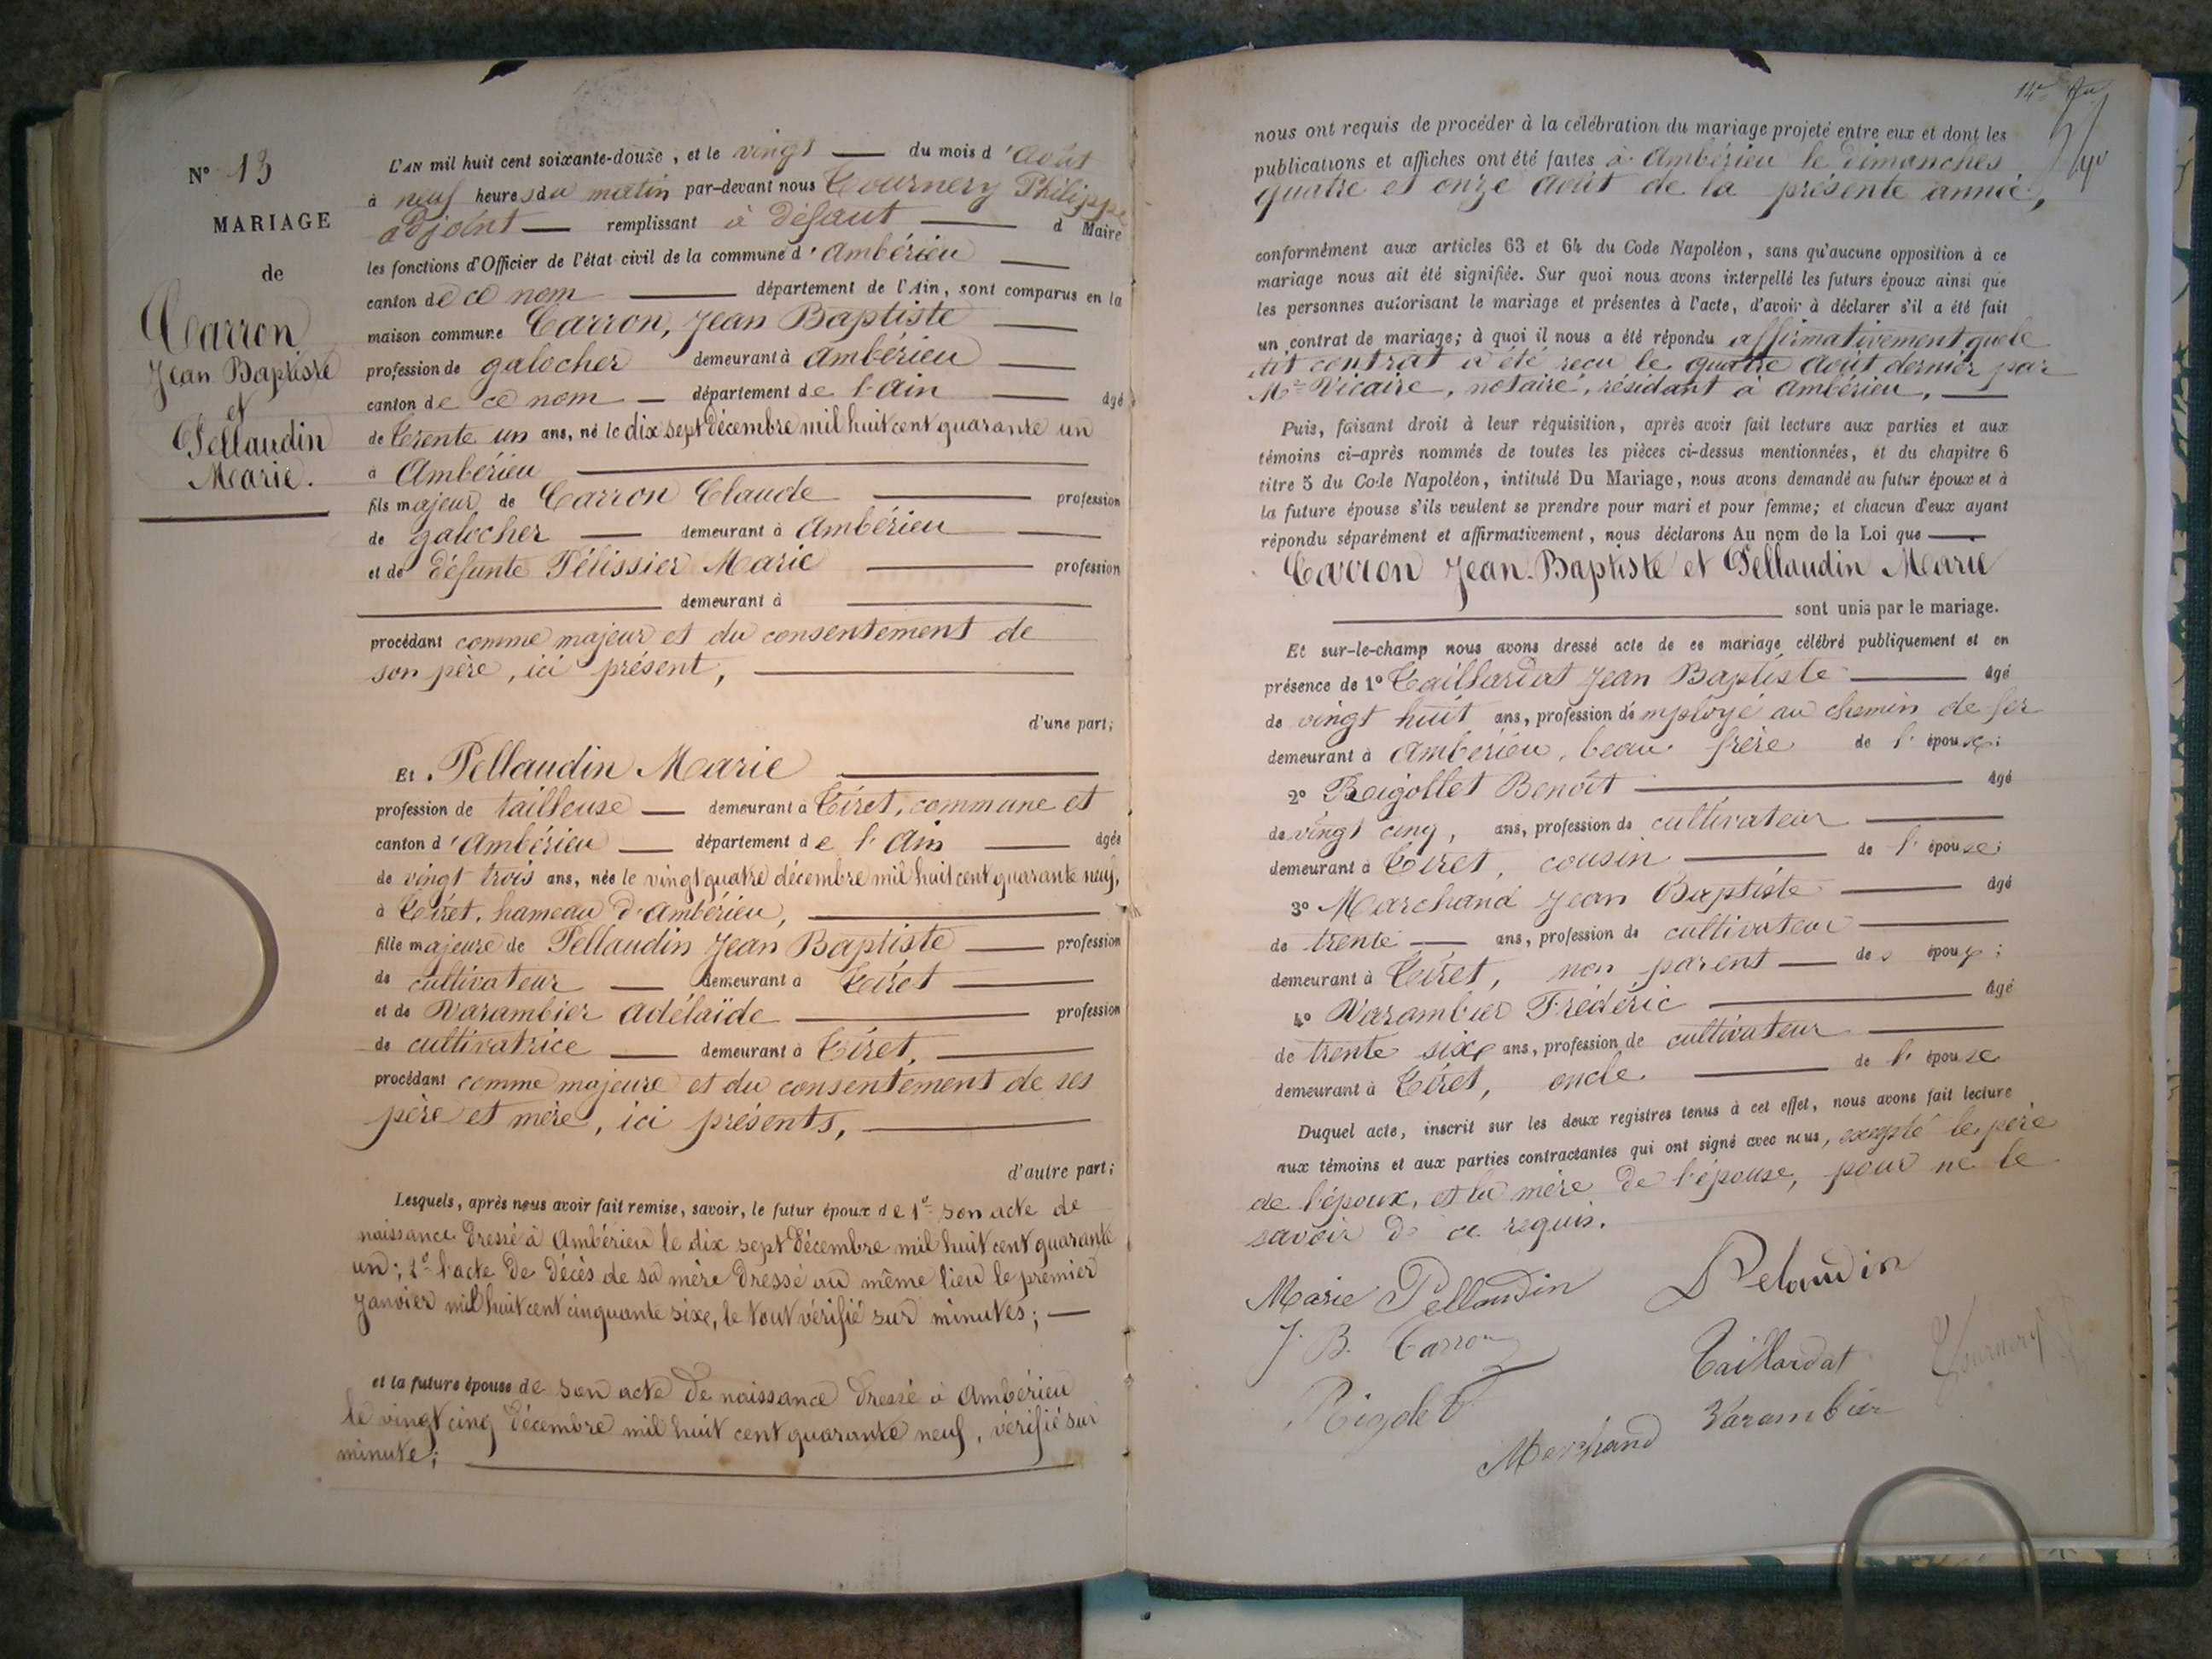 N° 13
MARIAGE
de
Carron
Jean Baptiste
et
Pellaudin
Marie.
L'AN mil huit cent soixante-douze, et le vingt — du mois d'Août
à neuf heures du matin par-devant nous Tournery Philippe
adjoint — remplissant à défaut — d Maire
les fonctions d'Officier de l'état civil de la commune d'Ambérieu —
canton de ce nom — département de l'Ain, sont comparus en la
maison commune Carron, Jean Baptiste —
profession de galocher demeurant à Ambérieu —
canton de ce nom — département de l'Ain — âgé
de trente un ans, né le dix sept décembre mil huit cent quarante un
à Ambérieu —
fils majeur de Carron Claude — profession
de galocher — demeurant à Ambérieu —
et de défunte Pélissier Marie — profession
— demeurant à —
procédant comme majeur et du consentement de
son père, ici présent, —
d'une part;
Et Pellaudin Marie —
profession de tailleuse — demeurant à Tiret, commune et
canton d'Ambérieu — département de l'Ain — âgée
de vingt trois ans, née le vingt quatre décembre mil huit cent quarante neuf,
à Tiret, hameau d'Ambérieu, —
fille majeure de Pellaudin Jean Baptiste — profession
de cultivateur — demeurant à Tiret —
et de Varambier Adélaïde — profession
de cultivatrice — demeurant à Tiret, —
procédant comme majeure et du consentement de ses
père et mère, ici présents, —
d'autre part;
Lesquels, après nous avoir fait remise, savoir, le futur époux de 1° son acte de
naissance dressé à Ambérieu le dix sept décembre mil huit cent quarante
un; 2° l'acte de décès de sa mère dressé au même lieu le premier
janvier mil huit cent cinquante sixe, le tout vérifié sur minutes; —
et la future épouse de son acte de naissance dressé à Ambérieu
le vingt cinq décembre mil huit cent quarante neuf, vérifié sur
minute; —
nous ont requis de procéder à la célébration du mariage projeté entre eux et dont les
publications et affiches ont été faites à Ambérieu le dimanches
quatre et onze Août de la présente année,
conformément aux articles 63 et 64 du Code Napoléon, sans qu'aucune opposition à ce
mariage nous ait été signifiée. Sur quoi nous avons interpellé les futurs époux ainsi que
les personnes autorisant le mariage et présentes à l'acte, d'avoir à déclarer s'il a été fait
un contrat de mariage; à quoi il nous a été répondu affirmativement que le
dit contrat a été reçu le quatre août dernier par
Me Vicaire, notaire, résidant à Ambérieu, —
Puis, faisant droit à leur réquisition, après avoir fait lecture aux parties et aux
témoins ci-après nommés de toutes les pièces ci-dessus mentionnées, et du chapitre 6
titre 5 du Code Napoléon, intitulé Du Mariage, nous avons demandé au futur époux et à
la future épouse s'ils veulent se prendre pour mari et pour femme; et chacun d'eux ayant
répondu séparément et affirmativement, nous déclarons Au nom de la Loi que —
Carron Jean-Baptiste et Pellaudin Marie
— sont unis par le mariage.
Et sur-le-champ nous avons dressé acte de ce mariage célébré publiquement et en
présence de 1° Taillardat Jean Baptiste — âgé
de vingt huit ans, profession d'employé au chemin de fer
demeurant à Ambérieu, beau frère de l'épouse;
2° Rigollet Benoît — âgé
de vingt cinq, ans, profession de cultivateur —
demeurant à Tiret, cousin — de l'épouse;
3° Marchand Jean Baptiste — âgé
de trente — ans, profession de cultivateur —
demeurant à Tiret, non parent — des époux;
4° Varambier Frédéric — âgé
de trente sixe ans, profession de cultivateur —
demeurant à Tiret, oncle — de l'épouse
Duquel acte, inscrit sur les deux registres tenus à cet effet, nous avons fait lecture
aux témoins et aux parties contractantes qui ont signé avec nous, excepté le père
de l'époux, et la mère de l'épouse, pour ne le
savoir de ce requis.
Marie Pellaudin Pelaudin
J. B. Carron Taillardat Tournery
Rigolet Varambier
Marchand